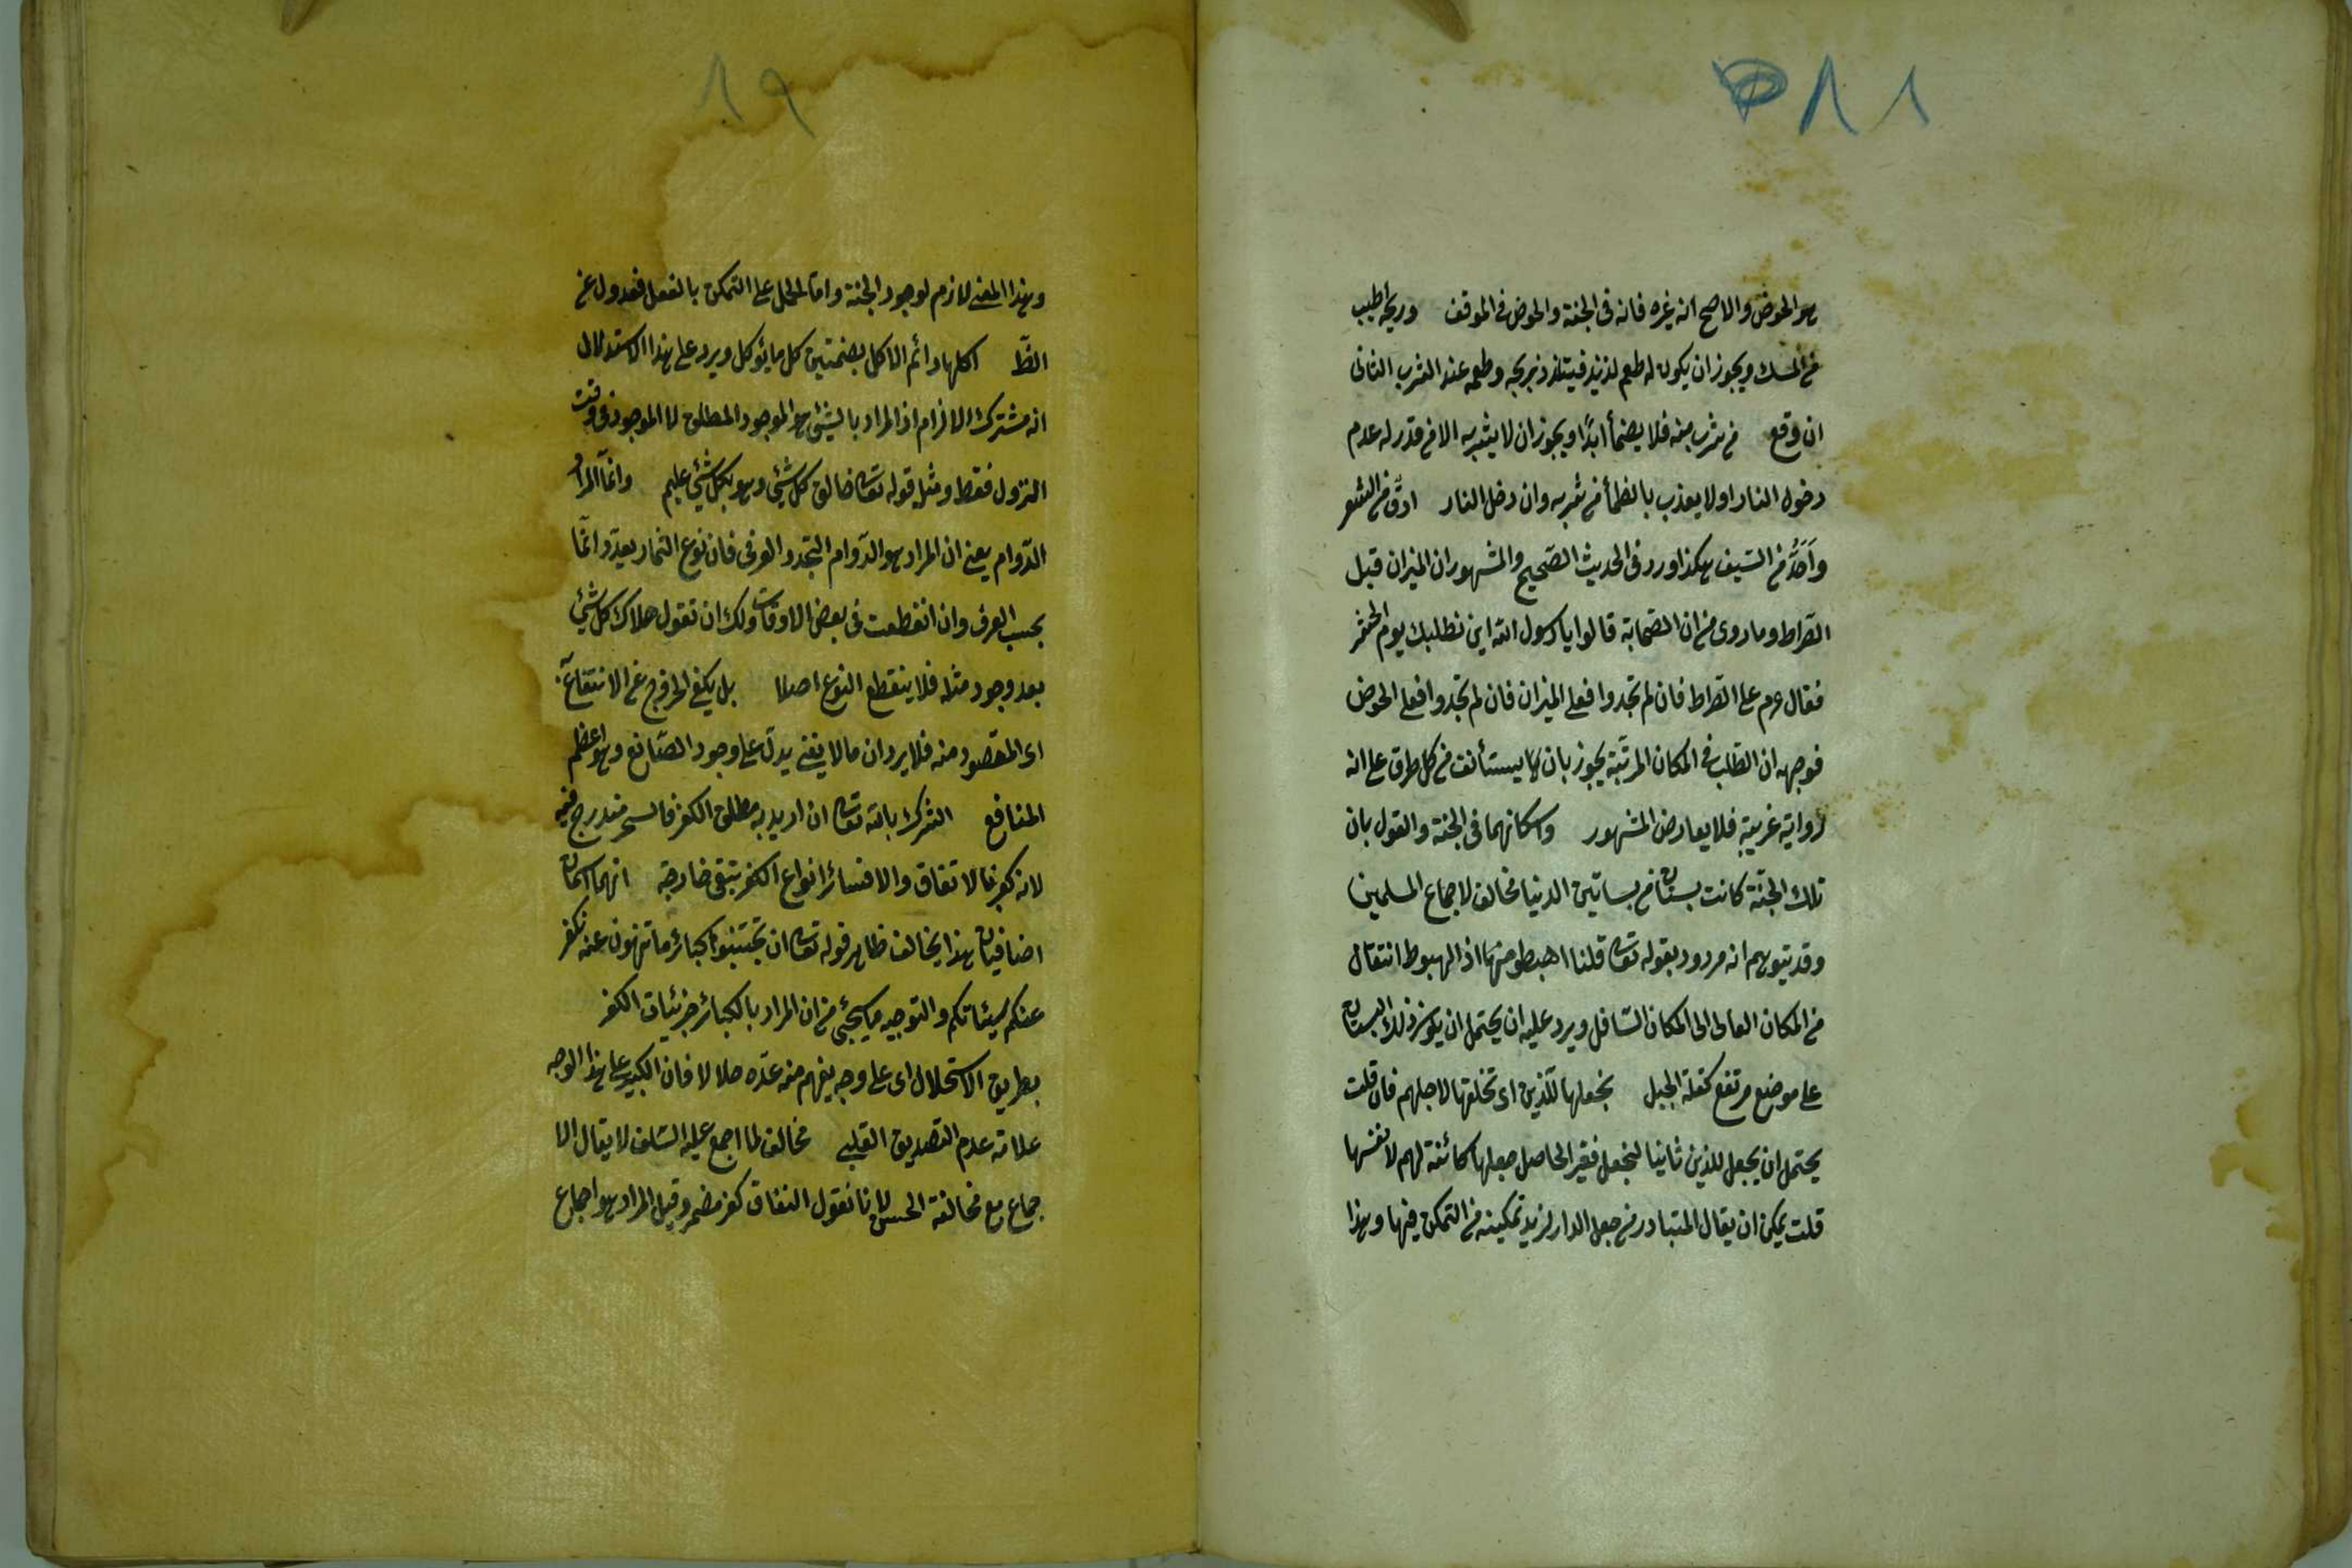 ٨٨
هو الحوض والاصح انه غيره فانه فى الجنة والحوض فى الموقف وريحه اطيب
من المسك ويجوز ان يكون له طعم لذيذ فيتلذذ بريحه وطعمه عند الشرب الثانى
ان وقع من شرب منه فلا يضمأ ابدًا ويجوز ان لا يشربه الا من قدر له عدم
دخول النار او لا يعذب بالظمأ من شربه وان دخل النار ادقّ من الشعر
واَحَدُّ من السّيف هكذا ورد فى الحديث الصّحيح والمشهور ان الميزان قبل
الصّراط وما روى من ان الصّحابة قالوا يا رسول الله اين نطلبك يوم الحشر
فقال عم على الصّراط فان لم تجدوا فعلى الميزان فان لم تجدوا فعلى الحوض
فوجهه ان الطّلب فى المكان المرتّبة يجوز بان يستأنف من كل طرف على انه
رواية غريبة فلا يعارض المشهور واسكانهما فى الجنة والقول بان
تلك الجنّة كانت بستانا من بساتين الدنيا مخالف لاجماع المسلمين
وقد يتوهم انه مردود بقوله تعالى قلنا اهبطوا منها اذ الهبوط انتقال
من المكان العالى الى المكان السّافل ويرد عليه ان يحتمل ان يكون ذلك البستان
على موضع مرتفع كقلة الجبل نجعلها للّذين اى نخلقها لاجلهم فان قلت
يحتمل ان يجعل للذين ثانيا لنجعل فقير الحاصل جعلها كائنة لهم لا نفسها
قلت يمكن ان يقال المتبادر من جعل الدار لزيد تمكينه من التمكن فيها وهذا
٨٩
وهذا المعنى لازم لوجود الجنة وامّا الحمل على التمكن بالفعل فعدول عن
الظّ اكلها دائم الاكل بضمتين كل ما يؤكل ويرد على هذا الاستدلال
انه مشترك الالزام اذ المراد بالشئ هو الموجود المطلق لا الموجود فى وقت
النزول فقط ومثل قوله تعالى خالق كل شئ وهو بكل شئ عليم وانّما المراد
الدّوام يعنى ان المراد هو الدّوام التجدد العرفى فان نوع الثمار يعدّ دائمًا
بحسب العرف وان انقطعت فى بعض الاوقات ولك ان تقول هلاك كل شئ
بعد وجود مثله فلا ينقطع النوع اصلا بل يكفى الخروج عن الانتفاع به
اى المقصود منه فلا يرد ان ما لا يفنى يدلّ على وجود الصّانع وهو اعظم
المنافع الشرك بالله تعالى ان اريد به مطلق الكفر فالسحر مندرج فيه
لانه كفر بالاتفاق والا فسائر انواع الكفر تبقى خارجة انهما اسمان
اضافيان هذا يخالف ظاهر قوله تعالى ان تجتنبوا كبائر ما تنهون عنه نكفر
عنكم سيئاتكم والتوجيه ما سيجئ من ان المراد بالكبائر جزئيات الكفر
بطريق الاستحلال اى على وجه يفهم منه عدّه حلالا فان الكبيرة على هذا الوجه
علامة عدم التصديق القلبى مخالف لما اجمع عليه السّلف لا يقال الا
جماع مع مخالفة الحسن لانا نقول النفاق كفر مضمر وقيل المراد هو اجماع